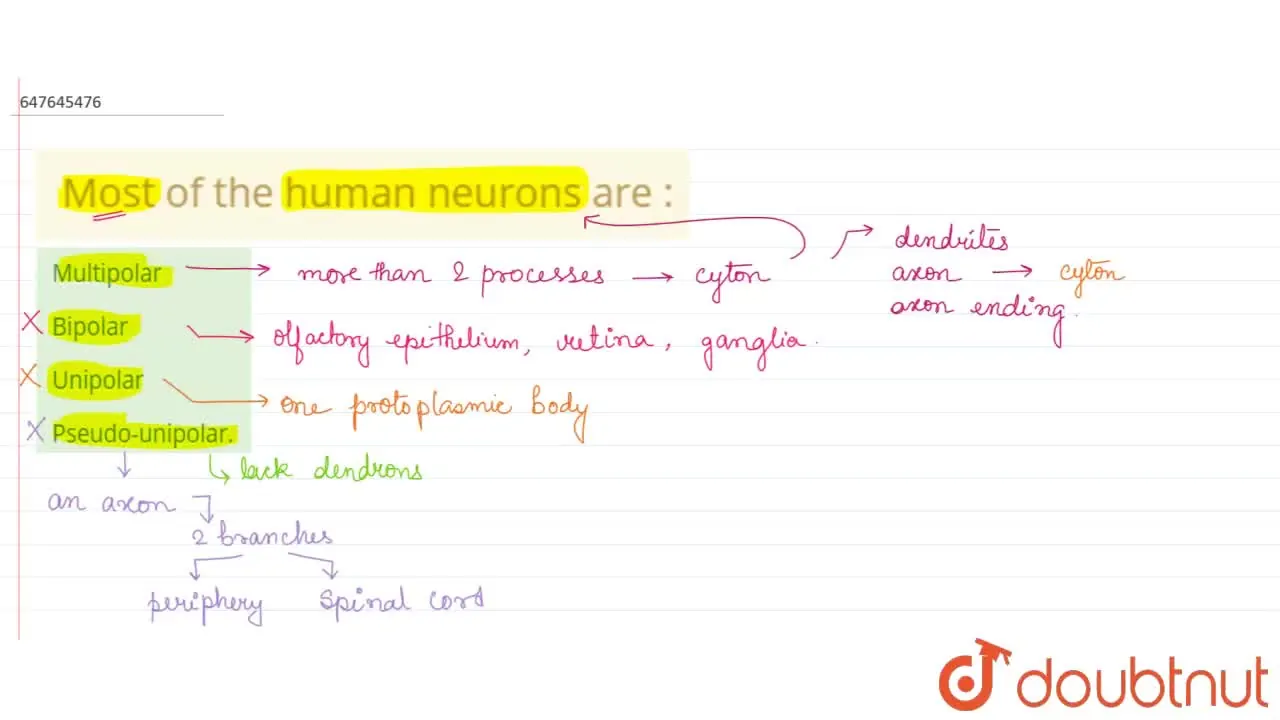 647645476
Most of the human neurons are :
dendrites
Multipolar → more than 2 processes → cyton
axon → cyton
axon ending.
X Bipolar → olfactory epithelium, retina, ganglia.
X Unipolar → one protoplasmic body
X Pseudo-unipolar.
lack dendrons
an axon
2 branches
periphery spinal cord
doubtnut